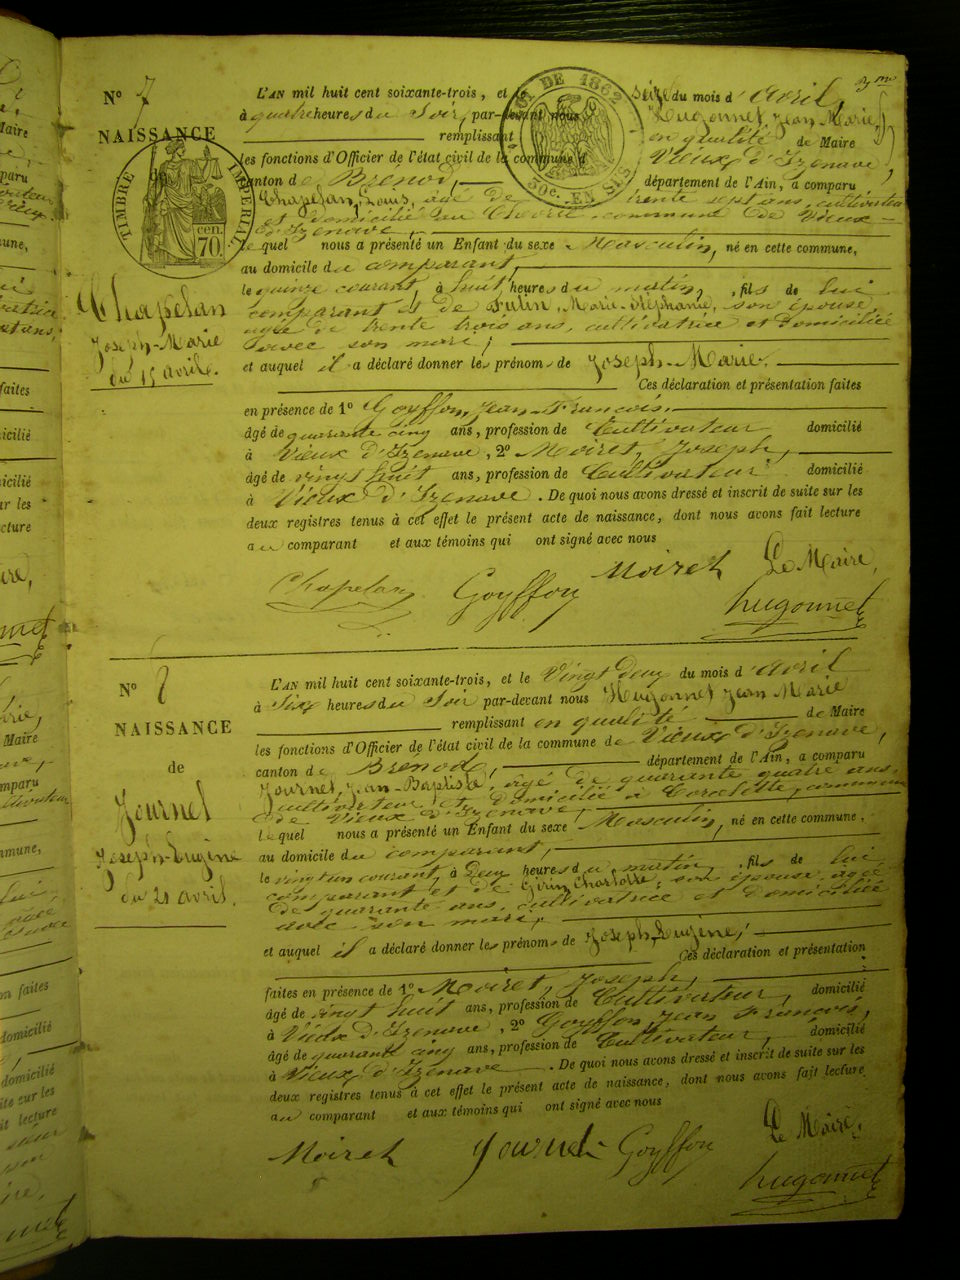 N° 7
NAISSANCE
de
Chapelan
Joseph-Marie
du 15 avril.
TIMBRE IMPERIAL
cen.
70.
LOI DE 1862
50c. EN SUS
L'AN mil huit cent soixante-trois, et le seize du mois d'Avril,
à quatre heures du Soir, par-devant nous Hugonnet, Jean Marie,
remplissant en qualité de Maire
les fonctions d'Officier de l'état civil de la commune d Vieux d'Izenave,
canton de Brenod, département de l'Ain, a comparu
Chapelan, Louis, âgé de trente sept ans, cultivateur
et domicilié au commune de Vieux-
d'Izenave,
lequel nous a présenté un Enfant du sexe Masculin, né en cette commune,
au domicile du comparant,
le quinze courant, à huit heures du matin, fils de lui
comparant et de Marie-Stéphanie, son épouse,
âgée de trente trois ans, cultivatrice et domiciliée
avec son mari;
et auquel il a déclaré donner les prénoms de Joseph-Marie.
Ces déclaration et présentation faites
en présence de 1° Goyffon, Jean-François,
âgé de quarante cinq ans, profession de Cultivateur domicilié
à Vieux d'Izenave, 2° Moiret, Joseph,
âgé de vingt huit ans, profession de Cultivateur domicilié
à Vieux d'Izenave. De quoi nous avons dressé et inscrit de suite sur les
deux registres tenus à cet effet le présent acte de naissance, dont nous avons fait lecture
au comparant et aux témoins qui ont signé avec nous
Chapelan Goyffon Moiret Le Maire,
hugonnet
N° 8
NAISSANCE
de
Journet
Joseph-Eugène
du 21 avril.
L'AN mil huit cent soixante-trois, et le Vingt deux du mois d'avril
à Six heures du Soir par-devant nous Hugonnet Jean Marie
remplissant en qualité de Maire
les fonctions d'Officier de l'état civil de la commune de Vieux d'Izenave,
canton de Brenod, département de l'Ain, a comparu
Journet, Jean-Baptiste, âgé de quarante quatre ans,
cultivateur et domicilié à commune
de Vieux d'Izenave,
lequel nous a présenté un Enfant du sexe Masculin, né en cette commune,
au domicile du comparant,
le vingt un courant, à Deux heures du matin, fils de lui
comparant et de son épouse âgée
de quarante ans, cultivatrice et domiciliée
avec son mari,
et auquel il a déclaré donner les prénoms de Joseph-Eugène;
Ces déclaration et présentation
faites en présence de 1° Moiret, Joseph,
âgé de vingt huit ans, profession de Cultivateur, domicilié
à Vieux d'Izenave, 2° Goyffon, Jean François,
âgé de quarante cinq ans, profession de Cultivateur, domicilié
à Vieux d'Izenave. De quoi nous avons dressé et inscrit de suite sur les
deux registres tenus à cet effet le présent acte de naissance, dont nous avons fait lecture
au comparant et aux témoins qui ont signé avec nous
Moiret Journet Goyffon Le Maire,
hugonnet